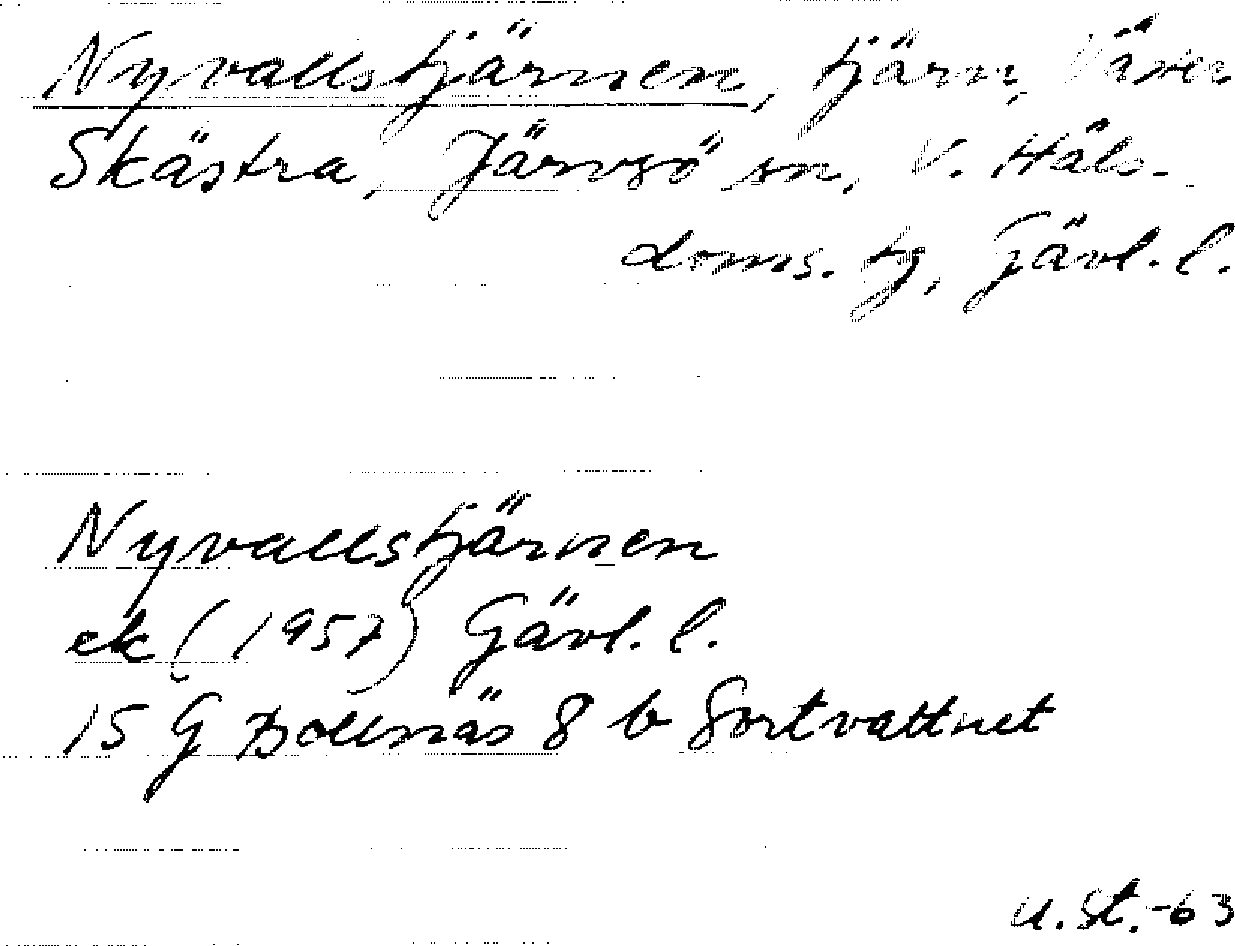 Nyvallstjärnen, tjärn, Väster
Skästra, Järvsö sn, V. Häls-
doms. tg, Gävl. l.
Nyvallstjärnen
ek (1957) Gävl. l.
15 G Bollnäs 8 b Sortvattnet
U. St. -63